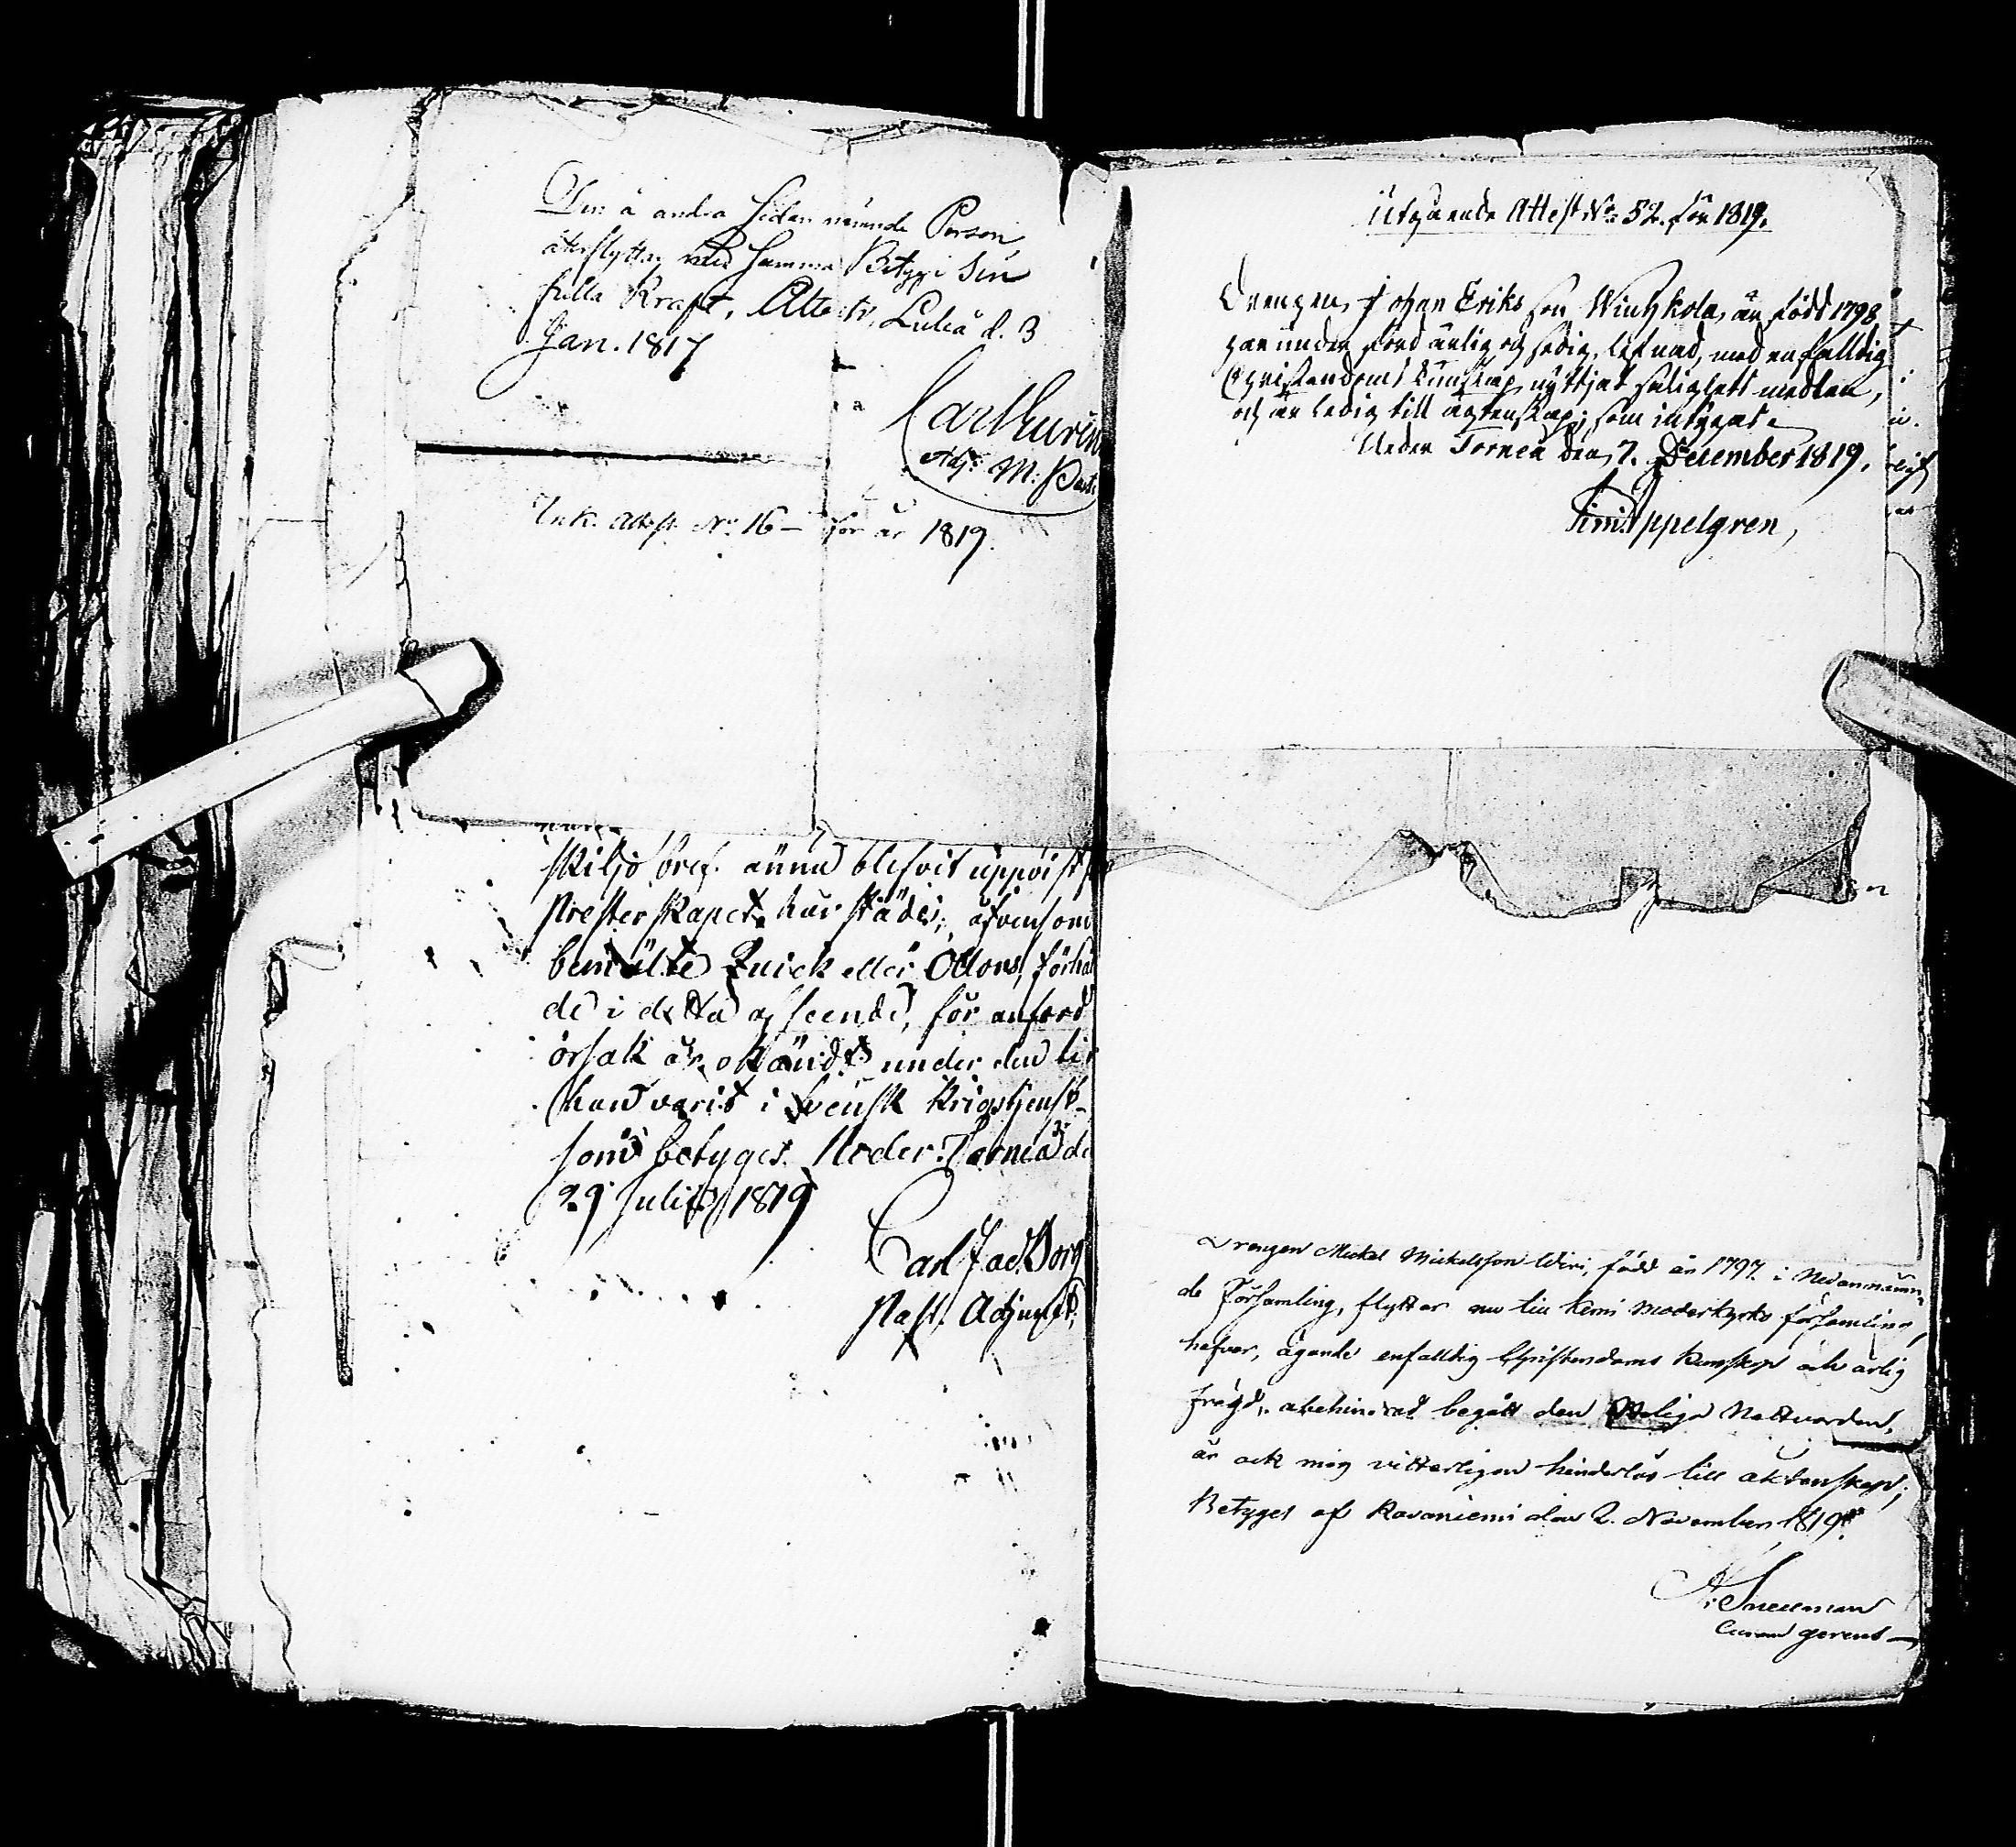 Den å andra Sidan nämnde Person
återflyttar med samma Betyg i sin
fulla Kraft, Attest. Luleå d. 3
Jan. 1817
Carl
Adj. M: Past.
Ink. Attest. No 16 – för år 1819.
skiljobref. ännu blefvit uppvist
Presterskapet härstädes; äfvensom
bemälte Quick eller Odons, förhål
de i detta afseende, för anförd
orsak är okändt under den tid
han varit i Svensk Krigstjenst
som betyges. Neder Torneå de
29 Julii 1819
Carl Jac. Borg
Past. Adjunct.
Utgående Attest No 52. för 1819.
Drengen Johan Eriksson är född 1798
har under förd ärlig och sedig lefnad, med enfalldig
Christendoms kunskap nyttjat salighets medlen,
och är ledig till ägtenskap; som intygas
Neder Torneå den 7. December 1819.
Sim: Appelgren,
Drengen Mickel Mickelsson Wiri, född år 1797 i Nedannämn
de Församling, flyttar nu till Kemi Moderkyrko församling,
hafver, ägande enfalldig Christendoms Kunskap och ärlig
frägd, obehindrad begått den Heliga Nattvarden,
är ock mig vitterligen hinderlös till äktenskap;
Betyges af Rovaniemi den 2. November 1819.
Snellman
Curam gerens